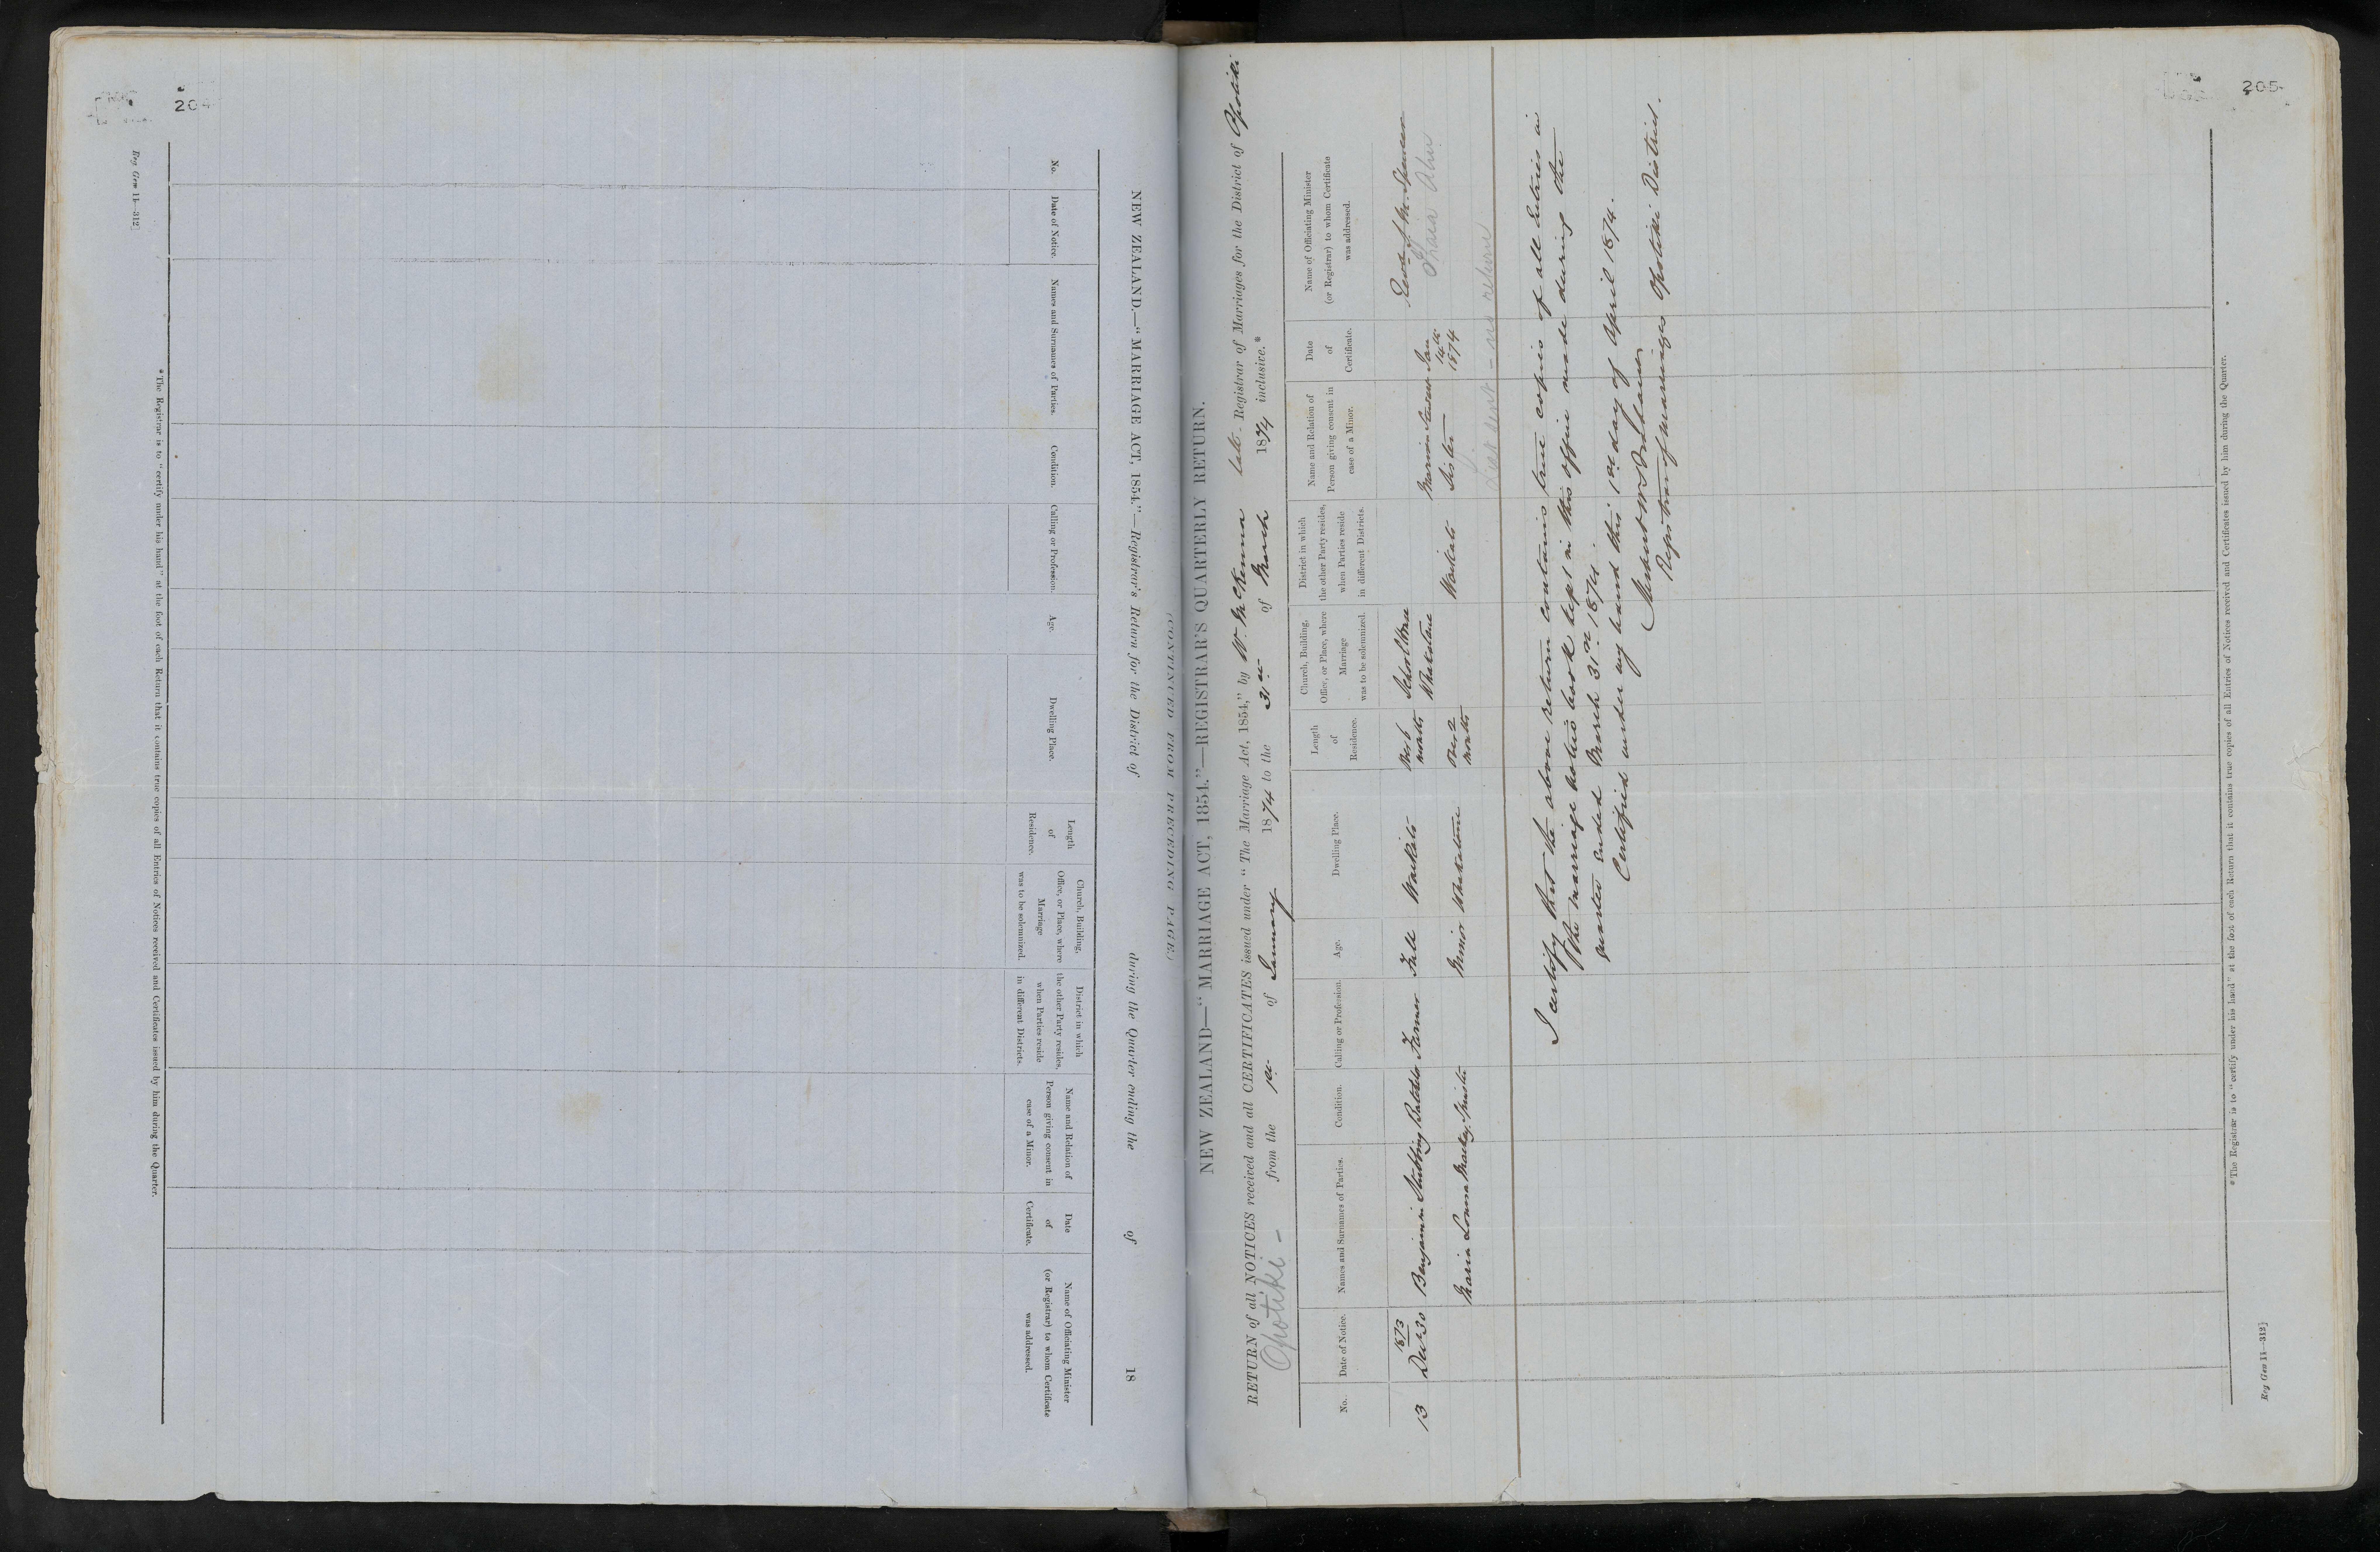 204
NEW ZEALAND.—"MARRIAGE ACT, 1854."—Registrar's Return for the District of during the Quarter ending the of 18
(CONTINUED FROM PRECEDING PAGE.)
No.
Date of Notice.
Names and Surnames of Parties.
Condition.
Calling or Profession.
Age.
Dwelling Place.
Length
of
Residence.
Church, Building,
Office, or Place, where
Marriage
was to be solemnized.
District in which
the other Party resides,
when Parties reside
in different Districts.
Name and Relation of
Person giving consent in
case of a Minor.
Date
of
Certificate.
Name of Officiating Minister
(or Registrar) to whom Certificate
was addressed.
* The Registrar is to "certify under his hand" at the foot of each Return that it contains true copies of all Entries of Notices received and Certificates issued by him during the Quarter.
Reg Gen 11—312]
205
NEW ZEALAND—"MARRIAGE ACT, 1854."—REGISTRAR'S QUARTERLY RETURN.
RETURN of all NOTICES received and all CERTIFICATES issued under "The Marriage Act, 1854," by W. McKenna late Registrar of Marriages for the District of Opotiki
Opotiki - from the 1st of January 1874 to the 31st of March 1874 inclusive.*
No.
Date of Notice.
Names and Surnames of Parties.
Condition.
Calling or Profession.
Age.
Dwelling Place.
Length
of
Residence.
Church, Building,
Office, or Place, where
Marriage
was to be solemnized.
District in which
the other Party resides,
when Parties reside
in different Districts.
Name and Relation of
Person giving consent in
case of a Minor.
Date
of
Certificate.
Name of Officiating Minister
(or Registrar) to whom Certificate
was addressed.
13
1873
Decr 30
Benjamin Stubbing
Bachelor
Farmer
Full
Waikato
6
months
School House
Whakatane
Jan
14th
1874
Revd Spencer
Maria Louisa
Spinster
Minor
Whakatane
2
months
Waikato
Sister
List sent - no return
I certify that the above return contains true copies of all Entries in
the marriage notice book kept in this office made during the
quarter ended March 31st 1874.
Certified under my hand this 1st day of April 1874.
Herbert W Brabant
Registrar of marriages Opotiki District.
* The Registrar is to "certify under his hand" at the foot of each Return that it contains true copies of all Entries of Notices received and Certificates issued by him during the Quarter.
Reg Gen 11—312]